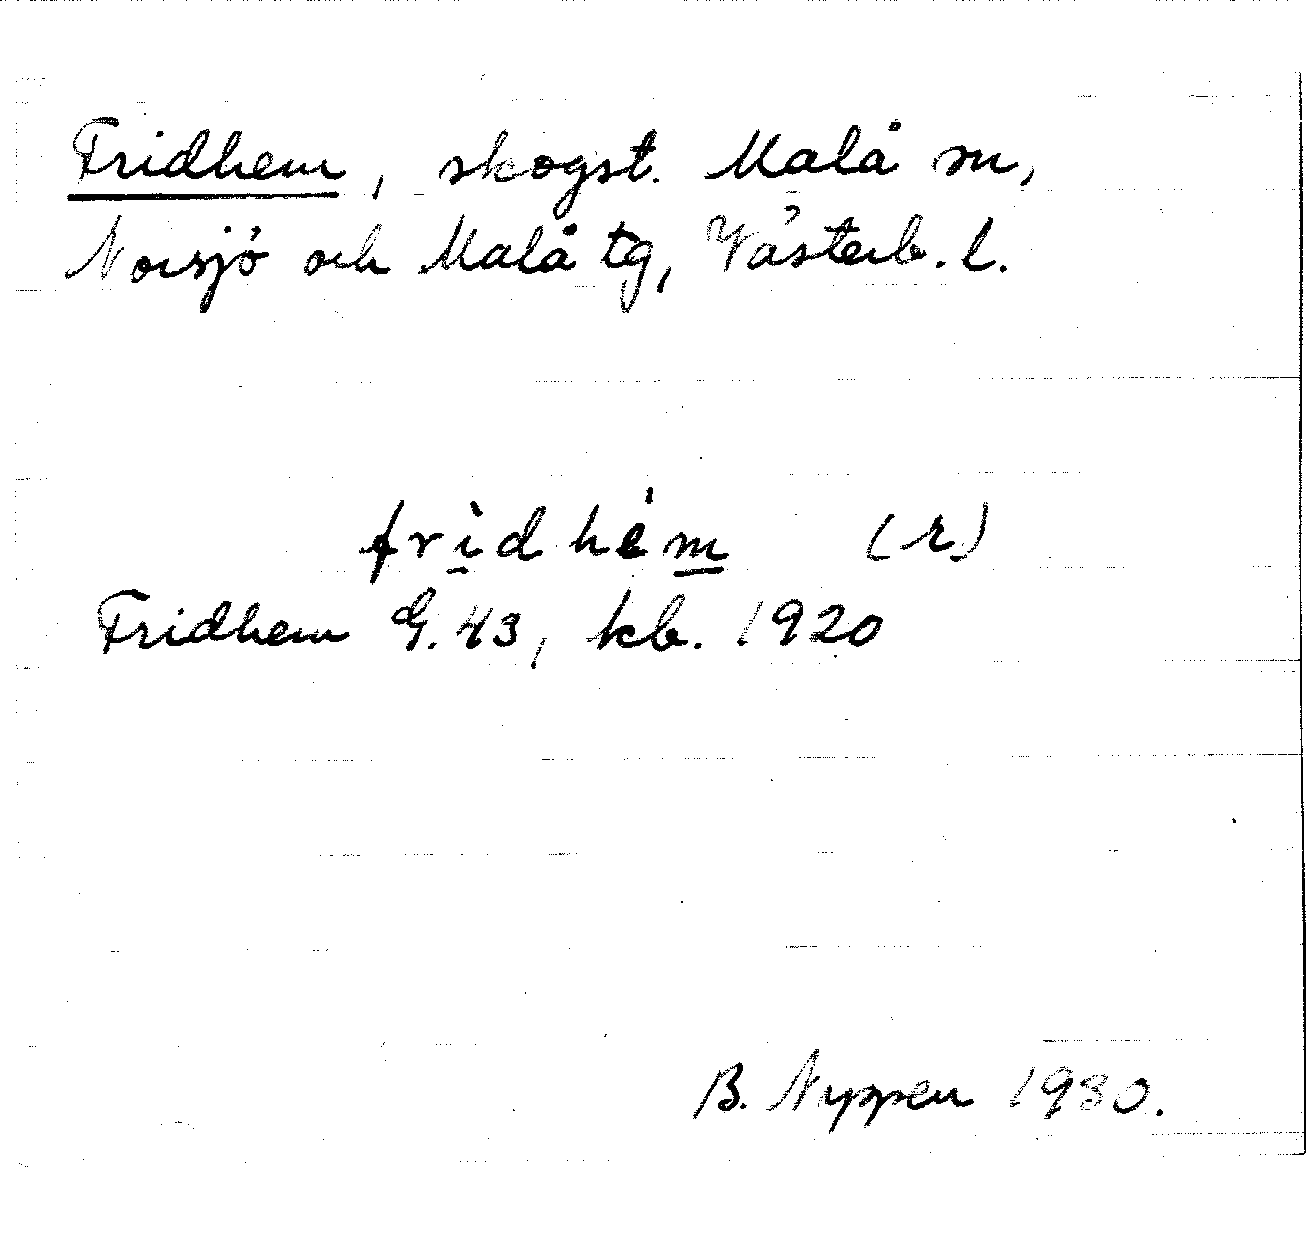 Fridhem, skogst. Malå sn,
Norsjö och Malå tg, Västerb. l.
fri̲dhém̲ (r)
Fridhem G. 43, kb. 1920
B. Nyppen 1930.